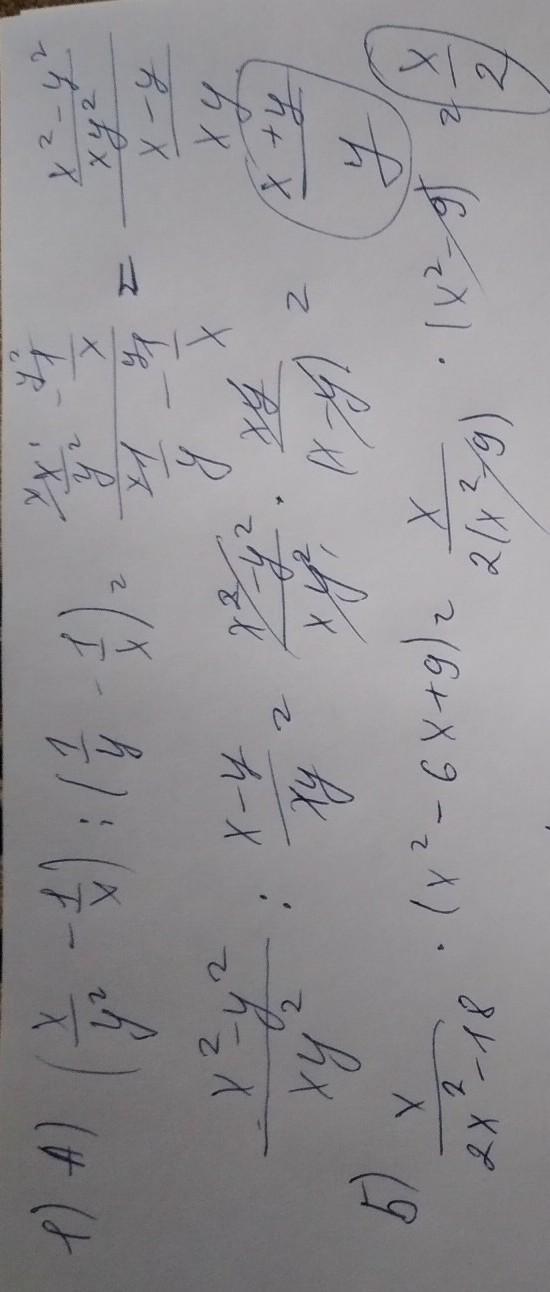 1) А) (x/y² - 1/x) : (1/y - 1/x) = (x\x/y² - y²\1/x)/(x\1/y - y\1/x) = ((x² - y²)/(xy²))/((x - y)/(xy))
= (x² - y²)/(xy²) : (x - y)/(xy) = (x² - y²)/(xy²) · xy/(x - y) = (x + y)/y
Б) x/(2x² - 18) · (x² - 6x + 9) = x/(2(x² - 9)) · (x² - 9) = x/2